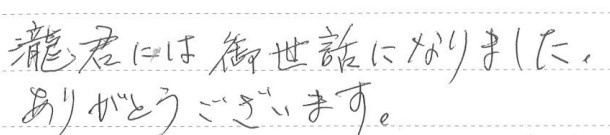 瀧君には御世話になりました、
ありがとうございます。